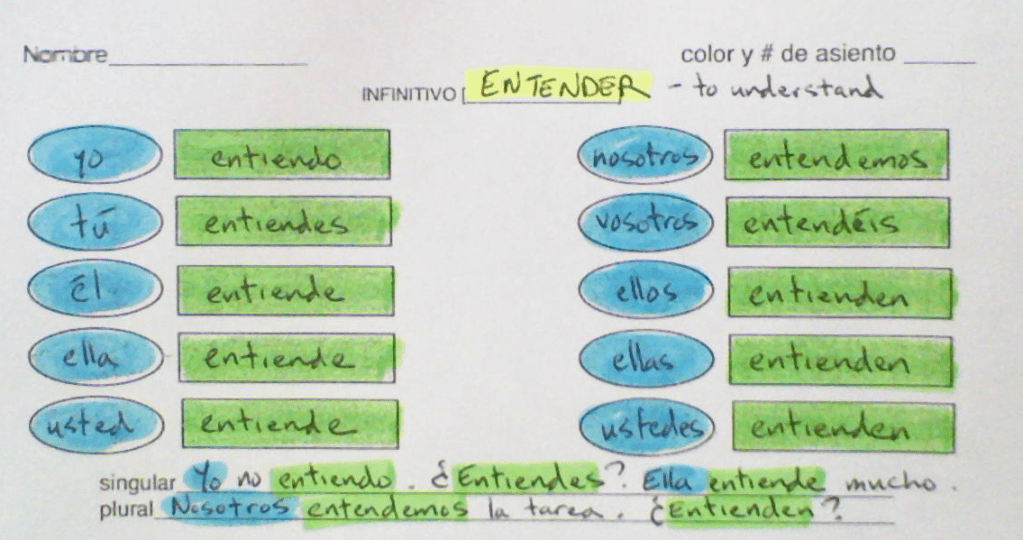 Nombre color y # de asiento
INFINITIVO ENTENDER - to understand
yo entiendo nosotros entendemos
tú entiendes vosotros entendéis
él entiende ellos entienden
ella entiende ellas entienden
usted entiende ustedes entienden
singular Yo no entiendo. ¿Entiendes? Ella entiende mucho.
plural Nosotros entendemos la tarea. ¿Entienden?